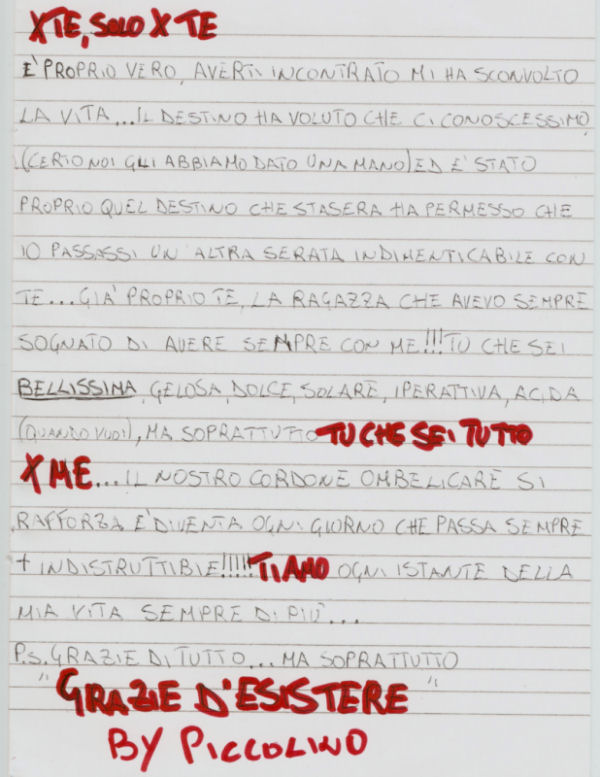 X TE, SOLO X TE
E' PROPRIO VERO, AVERTI INCONTRATO MI HA SCONVOLTO
LA VITA... IL DESTINO HA VOLUTO CHE CI CONOSCESSIMO
(CERTO NOI GLI ABBIAMO DATO UNA MANO) ED E' STATO
PROPRIO QUEL DESTINO CHE STASERA HA PERMESSO CHE
IO PASSASSI UN ALTRA SERATA INDIMENTICABILE CON
TE... GIA' PROPRIO TE, LA RAGAZZA CHE AVEVO SEMPRE
SOGNATO DI AVERE SEMPRE CON ME!!! TU CHE SEI
BELLISSINA, GELOSA, DOLCE, SOLARE, IPERATTIVA, ACIDA
(QUANDO VUOI), MA SOPRATTUTTO TU CHE SEI TUTTO
X ME... IL NOSTRO CORDONE OMBELICARE SI
RAFFORZA E' DIVENTA OGNI GIORNO CHE PASSA SEMPRE
+ INDISTRUTTIBIE!!!!! TI AMO OGNI ISTANTE DELLA
MIA VITA SEMPRE DI PIU'...
P.S. GRAZIE DI TUTTO... MA SOPRATTUTTO
"GRAZIE D'ESISTERE"
BY PICCOLINO